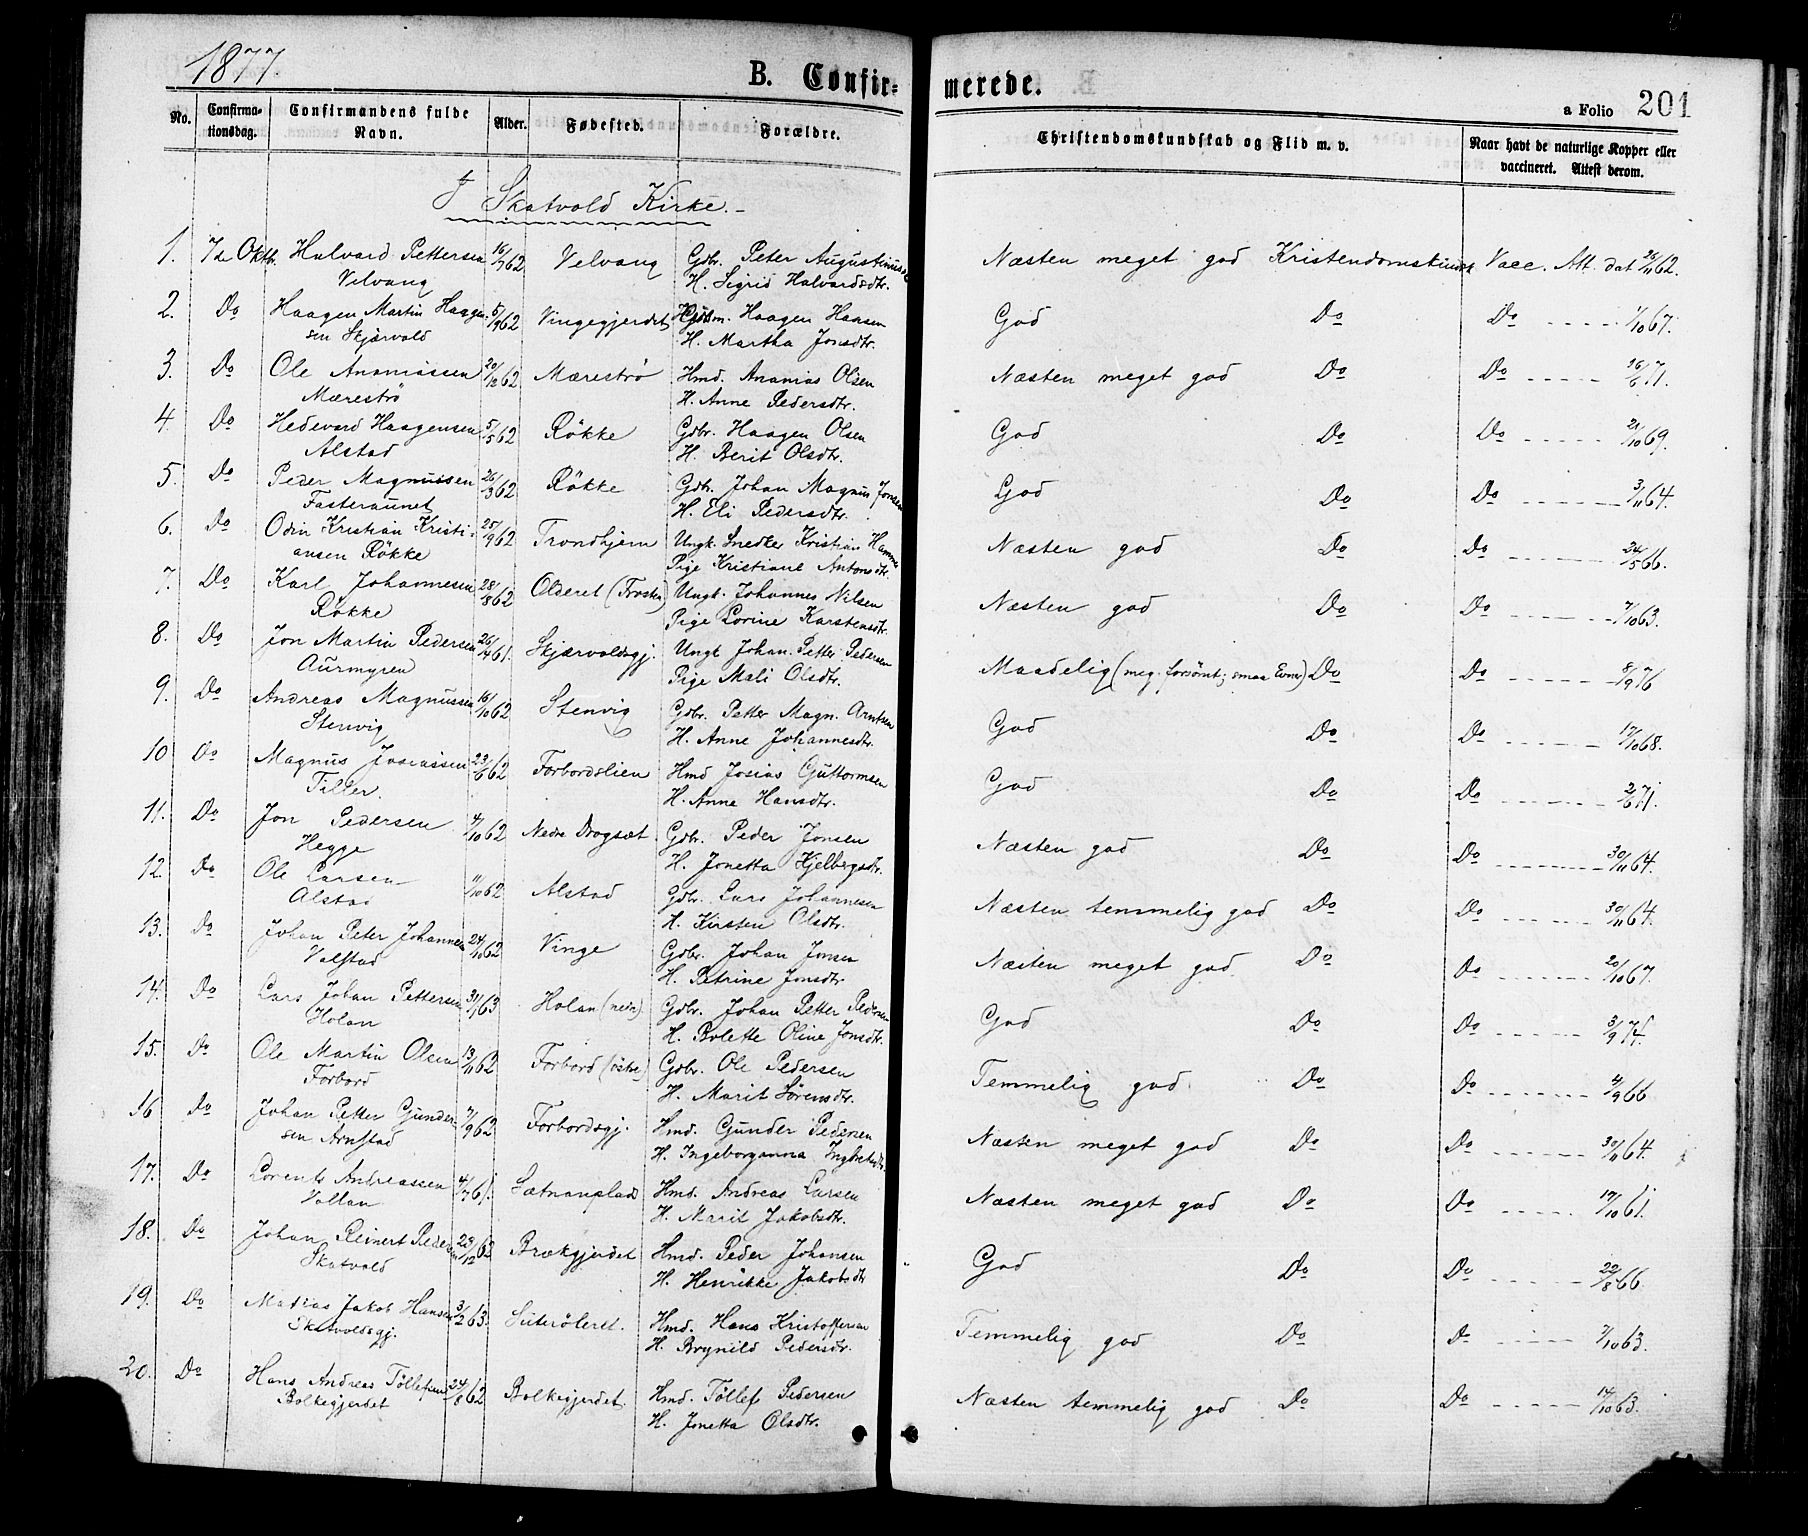 1877.
B. Confir-
merede.
a Folio 201
No. Confirma-tionsdag. Confirmandens fulde Navn. Alder. Fødested. Forældre. Christendomskundskab og Flid m. v. Naar havt de naturlige Kopper eller vaccineret. Attest derom.
I Skatvold Kirke.
1. 7de Oktb. Halvard Pettersen 16/7 62 Velvang Gdbr. Peter Augustinussen Næsten meget god Kristendomskundsk Vacc. Att. dat 26/11 62.
Velvang H. Sigrid Halvardsdtr.
2. Do Haagen Martin Haagen- 5/9 62 Vingegjerdet Husm. Haagen Hansen God Do Do 1/10 67.
sen Skjærvold H. Martha Jonsdtr.
3. Do Ole Ananiassen 20/10 62 Mærestrø Hmd. Ananias Olsen Næsten meget god Do Do 16/6 71.
Mæreströ H. Anne Pedersdtr.
4. Do Hedevard Haagensen 5/5 62 Røkke Gdbr. Haagen Olsen God Do Do 21/10 69.
Alstad H. Berit Olsdtr.
5. Do Peder Magnussen 26/3 62 Røkke Gdb. Johan Magnus Jonsen God Do Do 3/11 64.
Fasteraunet H. Eli Pedersdtr.
6. Do Odin Kristian Kristi- 25/9 62 Trondhjem Ungk. Snedker Kristian Hammer Næsten god Do Do 24/5 66.
ansen Røkke Pige Kristiane Antonsdtr.
7. Do Karl Johannesen 28/8 62 Olderet (Frosten) Ungk. Johannes Nilsen Næsten god Do Do 7/10 63.
Røkke Pige Lorine Karstensdtr.
8. Do Jon Martin Pedersen 26/4 61. Skjærvoldsgj. Ungk Johan Petter Pedersen Maadelig (meg. forsømt; smaa Evner) Do Do 8/9 76
Aurmyren Pige Mali Olsdtr.
9. Do Andreas Magnussen 16/10 62 Stenvig Gdbr. Petter Magn. Arntsen God Do Do 17/10 68.
Stenvig H. Anne Johannesdtr.
10 Do Magnus Josiassen 23/6 62 Forbordslien Hmd Josias Guttormsen God Do Do 2/6 71.
Tiller. H. Anne Hansdtr.
11. Do Jon Pedersen 4/10 62 Nedre Drogsæt Gdbr. Peder Jonsen Næsten god Do Do 30/11 64.
Hegge H. Jonetta Kjelbergsdtr.
12. Do Ole Larsen 11/10 62 Alstad Gdbr. Lars Johannesen Næsten temmelig god Do Do 30/11 64.
Alstad H. Kirsten Olsdtr.
13. Do Johan Peter Johannes 24/10 62 Vinge Gdbr. Johan Jonsen Næsten meget god Do Do 20/10 67.
Velstad H. Petrine Jonsdtr
14. Do Lars Johan Pettersen 31/1 63 Holan (nedre) Gdbr. Johan Petter Pedersen God Do Do 3/9 74.
Holan H. Bolette Oline Jonsdtr.
15. Do Ole Martin Olsen 13/11 62 Forbord (østre) Gdbr. Ole Pedersen Temmelig god Do Do 4/9 66
Forbord H. Marit Sörensdtr.
16 Do Johan Petter Gunder- 7/9 62 Forbordsgj. Hmd. Gunder Pedersen Næsten meget god Do Do 30/11 64.
sen Arnstad H. Ingeboranna Ingebrtsdtr.
17. Do Lorents Andreassen 4/7 61. Sætnanplads Hmd. Andreas Larsen Næsten meget god Do Do 19/10 61.
Vollan H. Marit Jakobsdtr.
18. Do Johan Reinert Pedersen 23/12 63 Brækgjerdet Hmd. Peder Johansen God Do Do 22/8 66.
Skatvold H. Henrikke Jakobsdtr
19. Do Matias Jakob Hansen 3/2 63. Suterøleret. Hmd. Hans Kristoffersen Temmelig god Do Do 7/10 63.
Skatvoldsgj. H. Brynild Pedersdtr.
20. Do Hans Andreas Töllefsen 24/8 62 Bolkegjerdet. Hmd. Töllef Pedersen Næsten temmelig god Do Do 14/10 63.
Bolkegjerdet H. Jonetta Olsdtr.